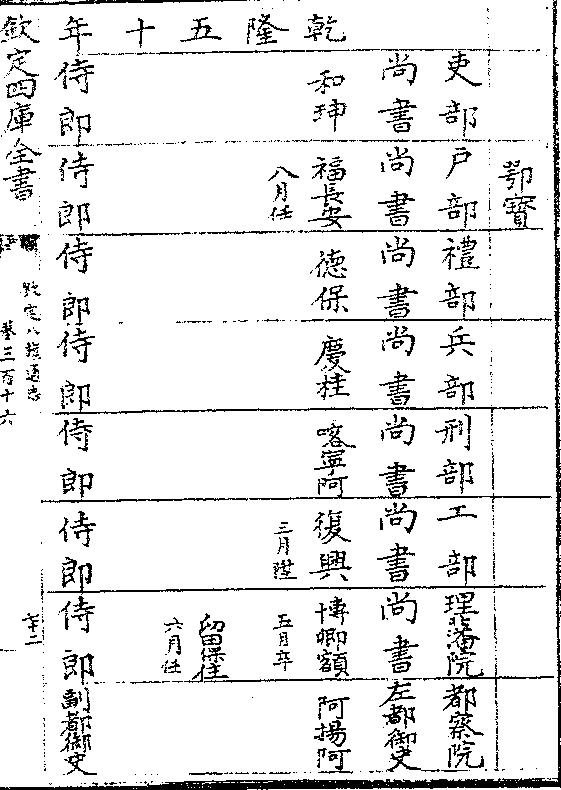 鄂寳
吏部 戸部 禮部 兵部 刑部 工部 理藩院 都察院
尚書 尚書 尚書 尚書 尚書 尚書 尚書 左都御史
乾 和珅 福長安 德保 慶桂 喀寧阿 復興 博卿額 阿揚阿
隆 八月任 三月陞 五月卒
五 留保住
十 六月任
年 侍郎 侍郎 侍郎 侍郎 侍郎 侍郎 侍郎 副都御史
欽定四庫全書
欽定八旗通志
卷三百十六